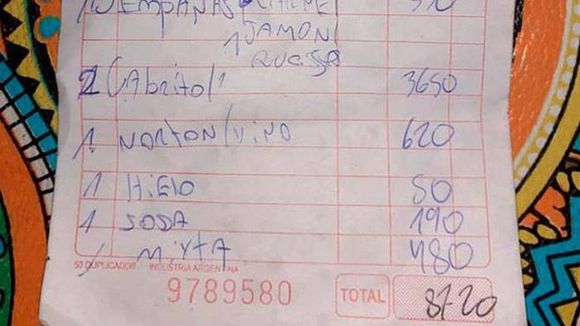 EMPANAS CARNE
1 JAMON
QUESO
2 CAbrito 3650
1 NORTON/VINO 620
1 HiElo 50
1 SODA 190
1 MIXTA 480
50 DUPLICADOS INDUSTRIA ARGENTINA
9789580 TOTAL 8720